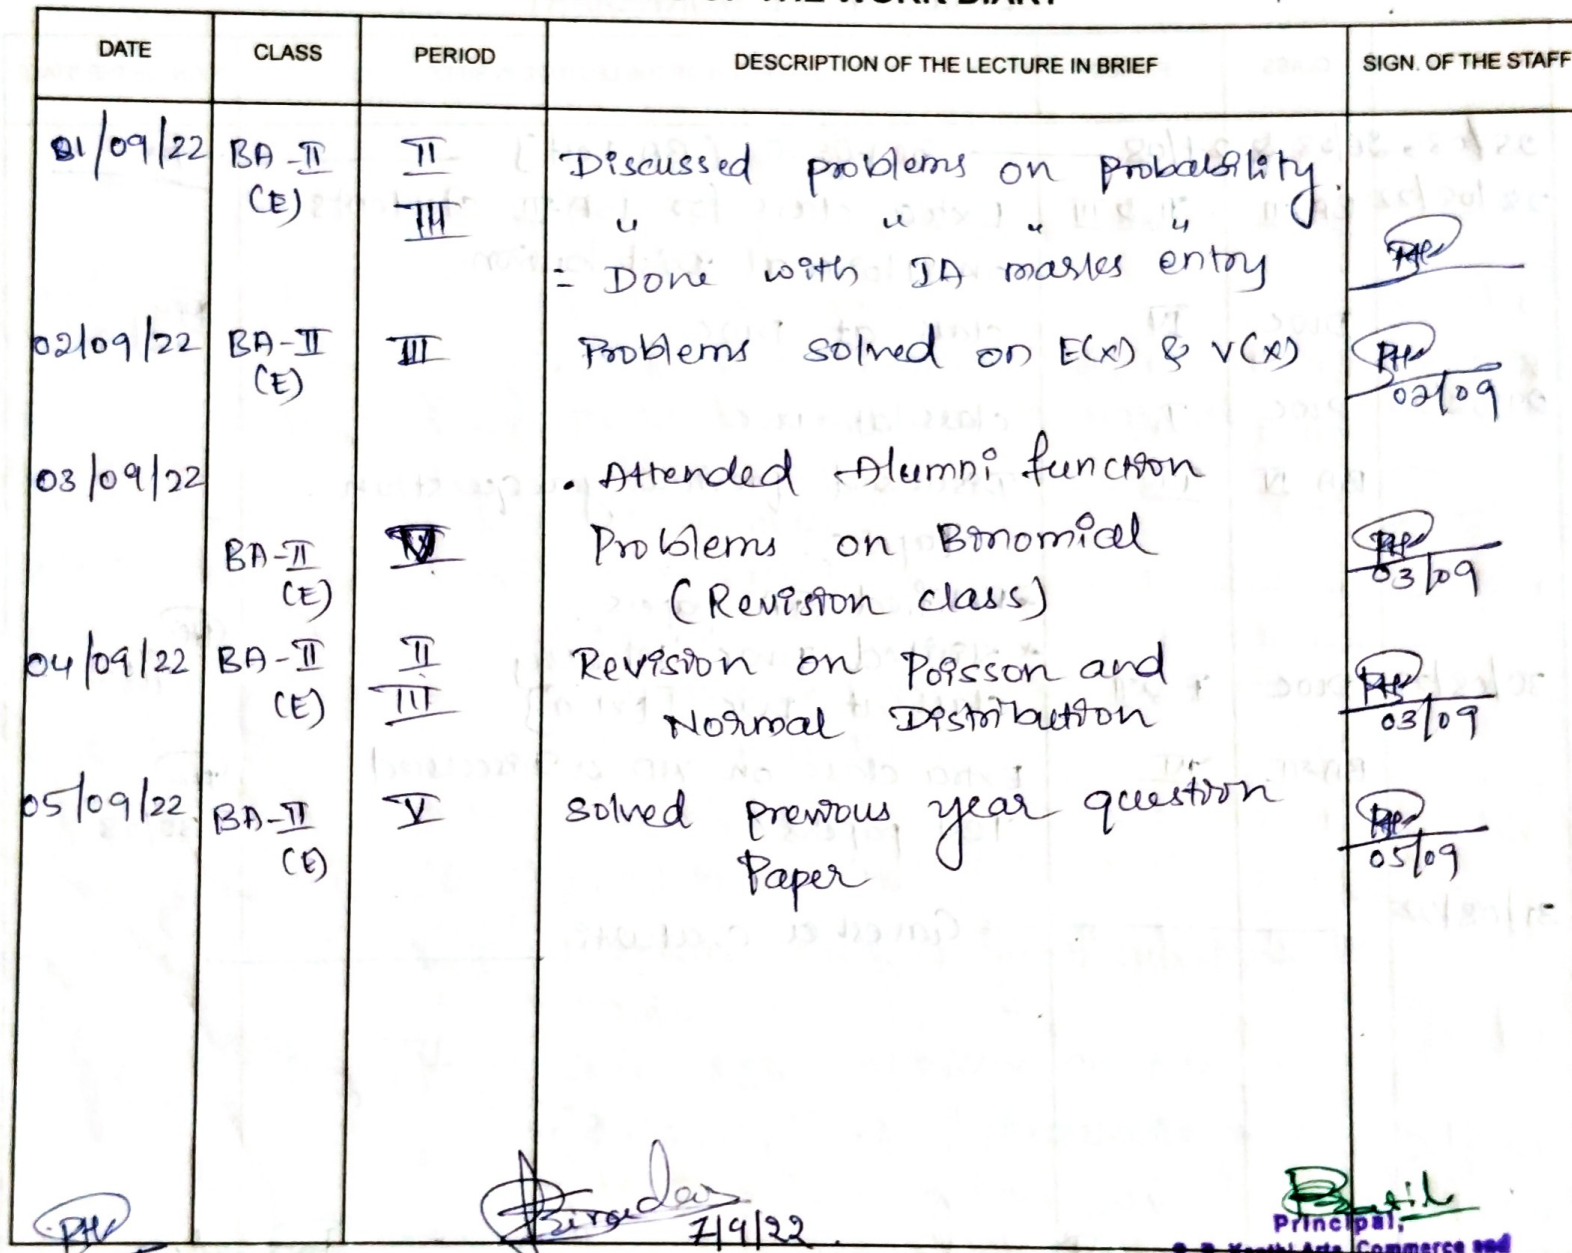 THE WORK DIARY
DATE CLASS PERIOD DESCRIPTION OF THE LECTURE IN BRIEF SIGN. OF THE STAFF
01/09/22 BA-II II Discussed problems on probability.
(E) III " " " "
= Done with IA marks entry
02/09/22 BA-II III Problems solved on E(x) & V(x)
(E) 02/09
03/09/22 . Attended Alumni function
BA-II IV Problems on Binomial
(E) (Revision class) 03/09
04/09/22 BA-II II Revision on Poisson and
(E) III Normal Distribution 03/09
05/09/22 BA-II V solved previous year question
(E) Paper 05/09
7/9/22
Principal,
Arts, Commerce and